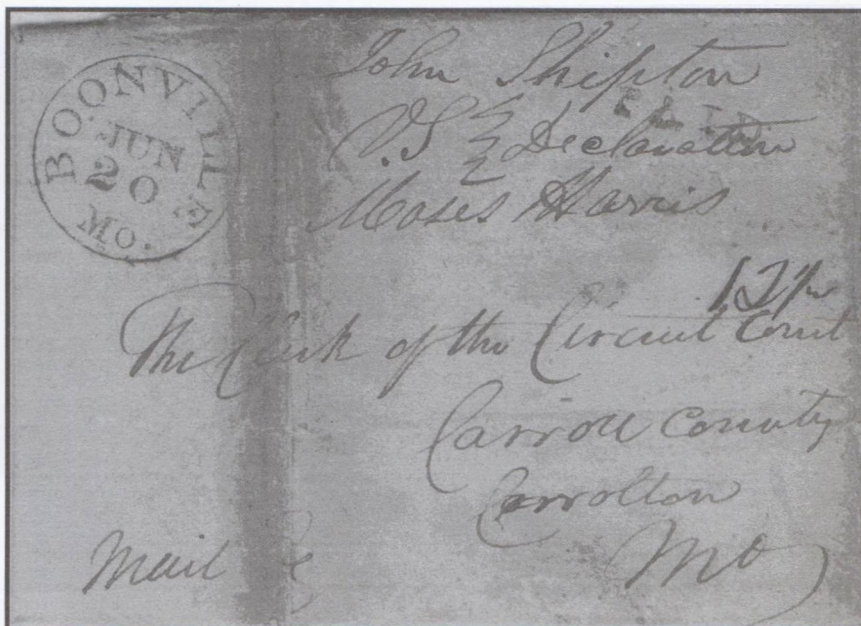 BOONVILLE
JUN
20
MO.
John Shipton
V.S } Declaration
Moses Harris
PAID
12½
The Clerk of the Circuit Court
Carroll County
Carrolton
Mail
Mo